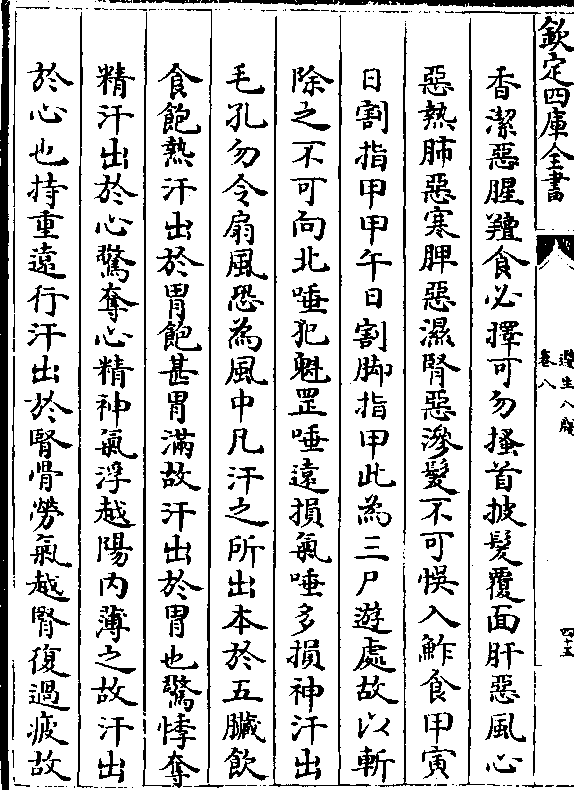 欽定四庫全書
遵生八牋
卷八
四十五
香潔惡腥羶食必擇可勿搔首披髮覆面肝惡風心
惡熱肺惡寒脾惡濕腎惡滲髮不可悮入鮓食甲寅
日割指甲甲午日割脚指甲此為三尸遊處故以斬
除之不可向北唾犯魁罡唾遠損氣唾多損神汗出
毛孔勿令扇風恐為風中凡汗之所出本於五臟飲
食飽熱汗出於胃飽甚胃滿故汗出於胃也驚悸奪
精汗出於心驚奪心精神氣浮越陽內薄之故汗出
於心也持重遠行汗出於腎骨勞氣越腎復過疲故